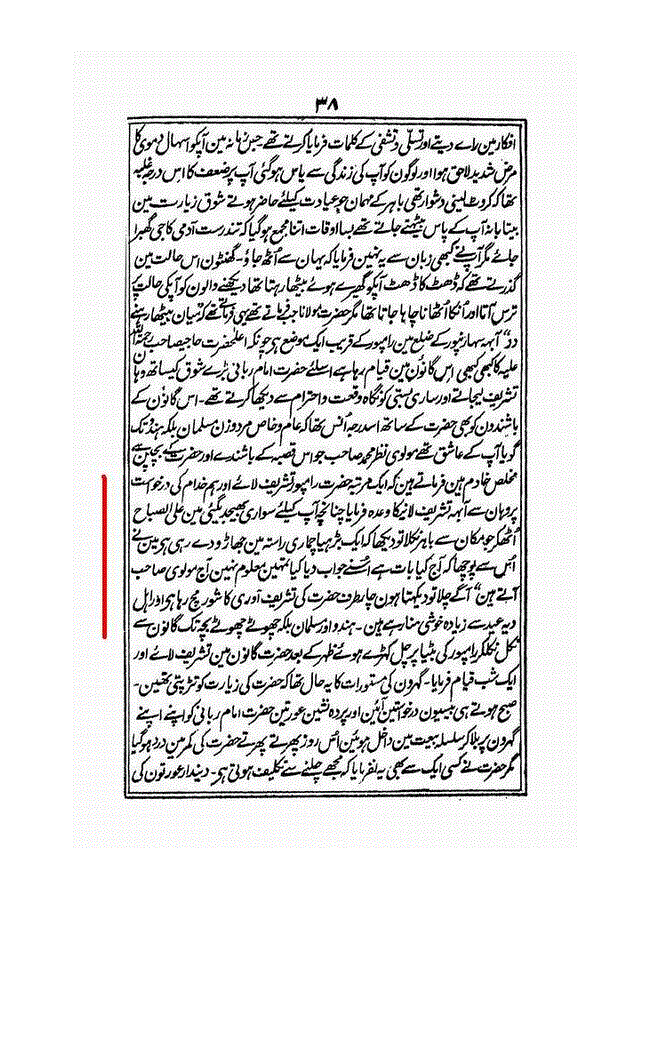 ۳۸
افکار مین راے دیتے اور تسلّی و تشفی کے کلمات فرمایا کرتے تھے۔ جس زمانہ مین آپکو اسہال دموی کا
مرض شدید لاحق ہوا اور لوگون کو آپ کی زندگی سے یاس ہوگئی آپ پر ضعف کا اس درجہ غلبہ
تھا کہ کروٹ لینی دشوار تھی باہر کے مہمان جو عیادت کیلئے حاضر ہوتے شوق زیارت مین
بیتابانہ آپ کے پاس بیٹھتے جاتے تھے بسا اوقات اتنا مجمع ہوگیا کہ تندرست آدمی کا جی گھبرا
جائے مگر آپنے کبھی زبان سے یہ نہین فرمایا کہ یہان سے اُٹھ جاؤ۔ گھنٹون اس حالت مین
گذرتے تھے کہ ٹھٹ کا ٹھٹ آپکو گھیرے ہوئے بیٹھا رہتا تھا دیکھنے والون کو آپکی حالت پر
ترس آتا اور اُنکا اُٹھانا چاہا جاتا تھا مگر حضرت مولانا جب فرماتے تھے یہی فرماتے تھے کہ "میان بیٹھا رہنے
دو" آبہہ سہارنپور کے ضلع مین رامپور کے قریب ایک موضع ہی چونکہ اعلیٰحضرت حاجیصاحب رحمۃ اللہ
علیہ کا کبھی کبھی اس گانون مین قیام رہا ہے اسلئے حضرت امام ربانی بڑے شوق کیساتھ وہان
تشریف لیجاتے اور ساری بستی کو نگاہ وقعت و احترام سے دیکھا کرتے تھے۔ اس گانون کے
باشندون کو بھی حضرت کے ساتھ اسدرجہ اُنس تھا کہ عام و خاص مرد و زن مسلمان بلکہ ہنود تک
گویا آپ کے عاشق تھے مولوی نظر محمد صاحب جو اس قصبہ کے باشندے اور حضرت کے بچپن سے
مخلص خادم ہین فرماتے ہین کہ ایک مرتبہ حضرت رامپور تشریف لائے اور ہم خدام کی درخواست
پر وہان سے آبہہ تشریف لانیکا وعدہ فرمایا چنانچہ آپ کیلئے سواری بھیجدیگئی مین علی الصباح
اُٹھکر جو مکان سے باہر نکلا تو دیکھا کہ ایک بڑہیا چماری راستہ مین جھاڑو دے رہی ہی مین نے
اُس سے پوچھا کہ آج کیا بات ہے اُسنے جواب دیا کیا تمہین معلوم نہین آج مولوی صاحب
آتے ہین" آگے چلا تو دیکھتا ہون چار طرف حضرت کی تشریف آوری کا شور مچ رہا ہی اور اہل
دیہ عید سے زیادہ خوشی منا رہے ہین۔ ہندو اور مسلمان بلکہ چھوٹے چھوٹے بچہ تک گانون سے
نکل نکلکر رامپور کی بٹیا پر چل کھڑے ہوئے ظہر کے بعد حضرت گانون مین تشریف لائے اور
ایک شب قیام فرمایا۔ گھرون کی مستورات کا یہ حال تھا کہ حضرت کی زیارت کو تڑپتی تھین۔
صبح ہوتے ہی بیسیون درخواستین آئین اور پردہ نشین عورتین حضرت امام ربانی کو اپنے اپنے
گھرون پر بلا کر سلسلہ بیعت مین داخل ہوئین اُس روز پھرتے پھرتے حضرت کی کمر مین درد ہوگیا
مگر حضرت نے کسی ایک سے بھی یہ نفرمایا کہ مجھے چلنے سے تکلیف ہوتی ہی۔ دیندار عورتون کی